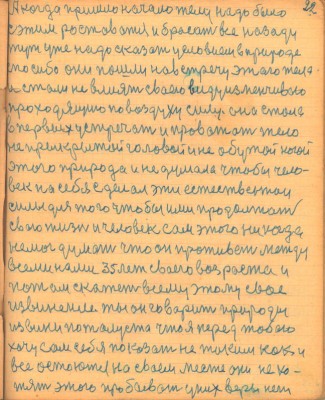 22
А когда пришло начало телу надо было
с этим роставатся и бросать все назаду
тут уже надо сказать человеком в природе
по себе они пошли на встречу этого тела
и стали не влиять своего виду изменчиво
проходящию по воздуху силу она стала
в первых устречать и проважать тело
не прикрытой головой и не обутой ногой
этого природа и не думала чтобы чело-
век на себе сделал эти естественная
силы для того чтобы ими продолжать
свою жизнь и человек сам этого никогда
не мог думать что он проживет между
всеми нами 35 лет своего возраста и
потом скажет всему этому свое
извинение ты он говорит природы
извини пожалуста что я перед тобою
хочу сам себя показать не таким как и
все остаются на своем месте они не хо-
тят этого пробоват у них веры нет